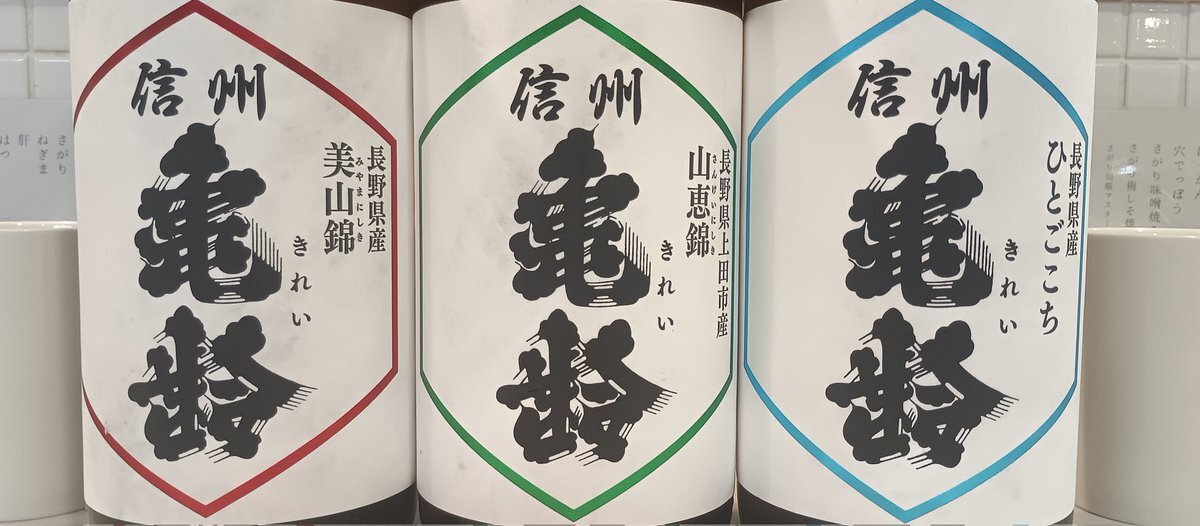 信州
亀齢
きれい
長野県産
美山錦
みやまにしき
信州
亀齢
きれい
長野県上田市産
山恵錦
さんけいにしき
信州
亀齢
きれい
長野県産
ひとごこち
さがり
ねぎま
肝
はつ
穴でっぽう
さがり味噌焼
さがり梅しそ焼